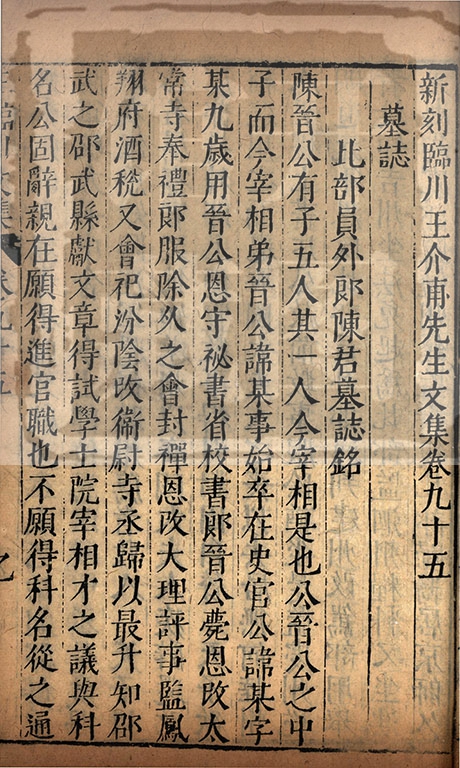 新刻臨川王介甫先生文集卷九十五
墓誌
比部員外郎陳君墓誌銘
陳晉公有子五人其一人今宰相是也公晉公之中
子而今宰相弟晉公諱某事始卒在史官公諱某字
某九歲用晉公恩守祕書省校書郎晉公薨恩改太
常寺奉禮郎服除久之會封禪恩改大理評事監鳳
翔府酒稅又會祀汾陰改衛尉寺丞歸以最升知邵
武之邵武縣獻文章得試學士院宰相才之議與科
名公固辭親在願得進官職也不願得科名從之通